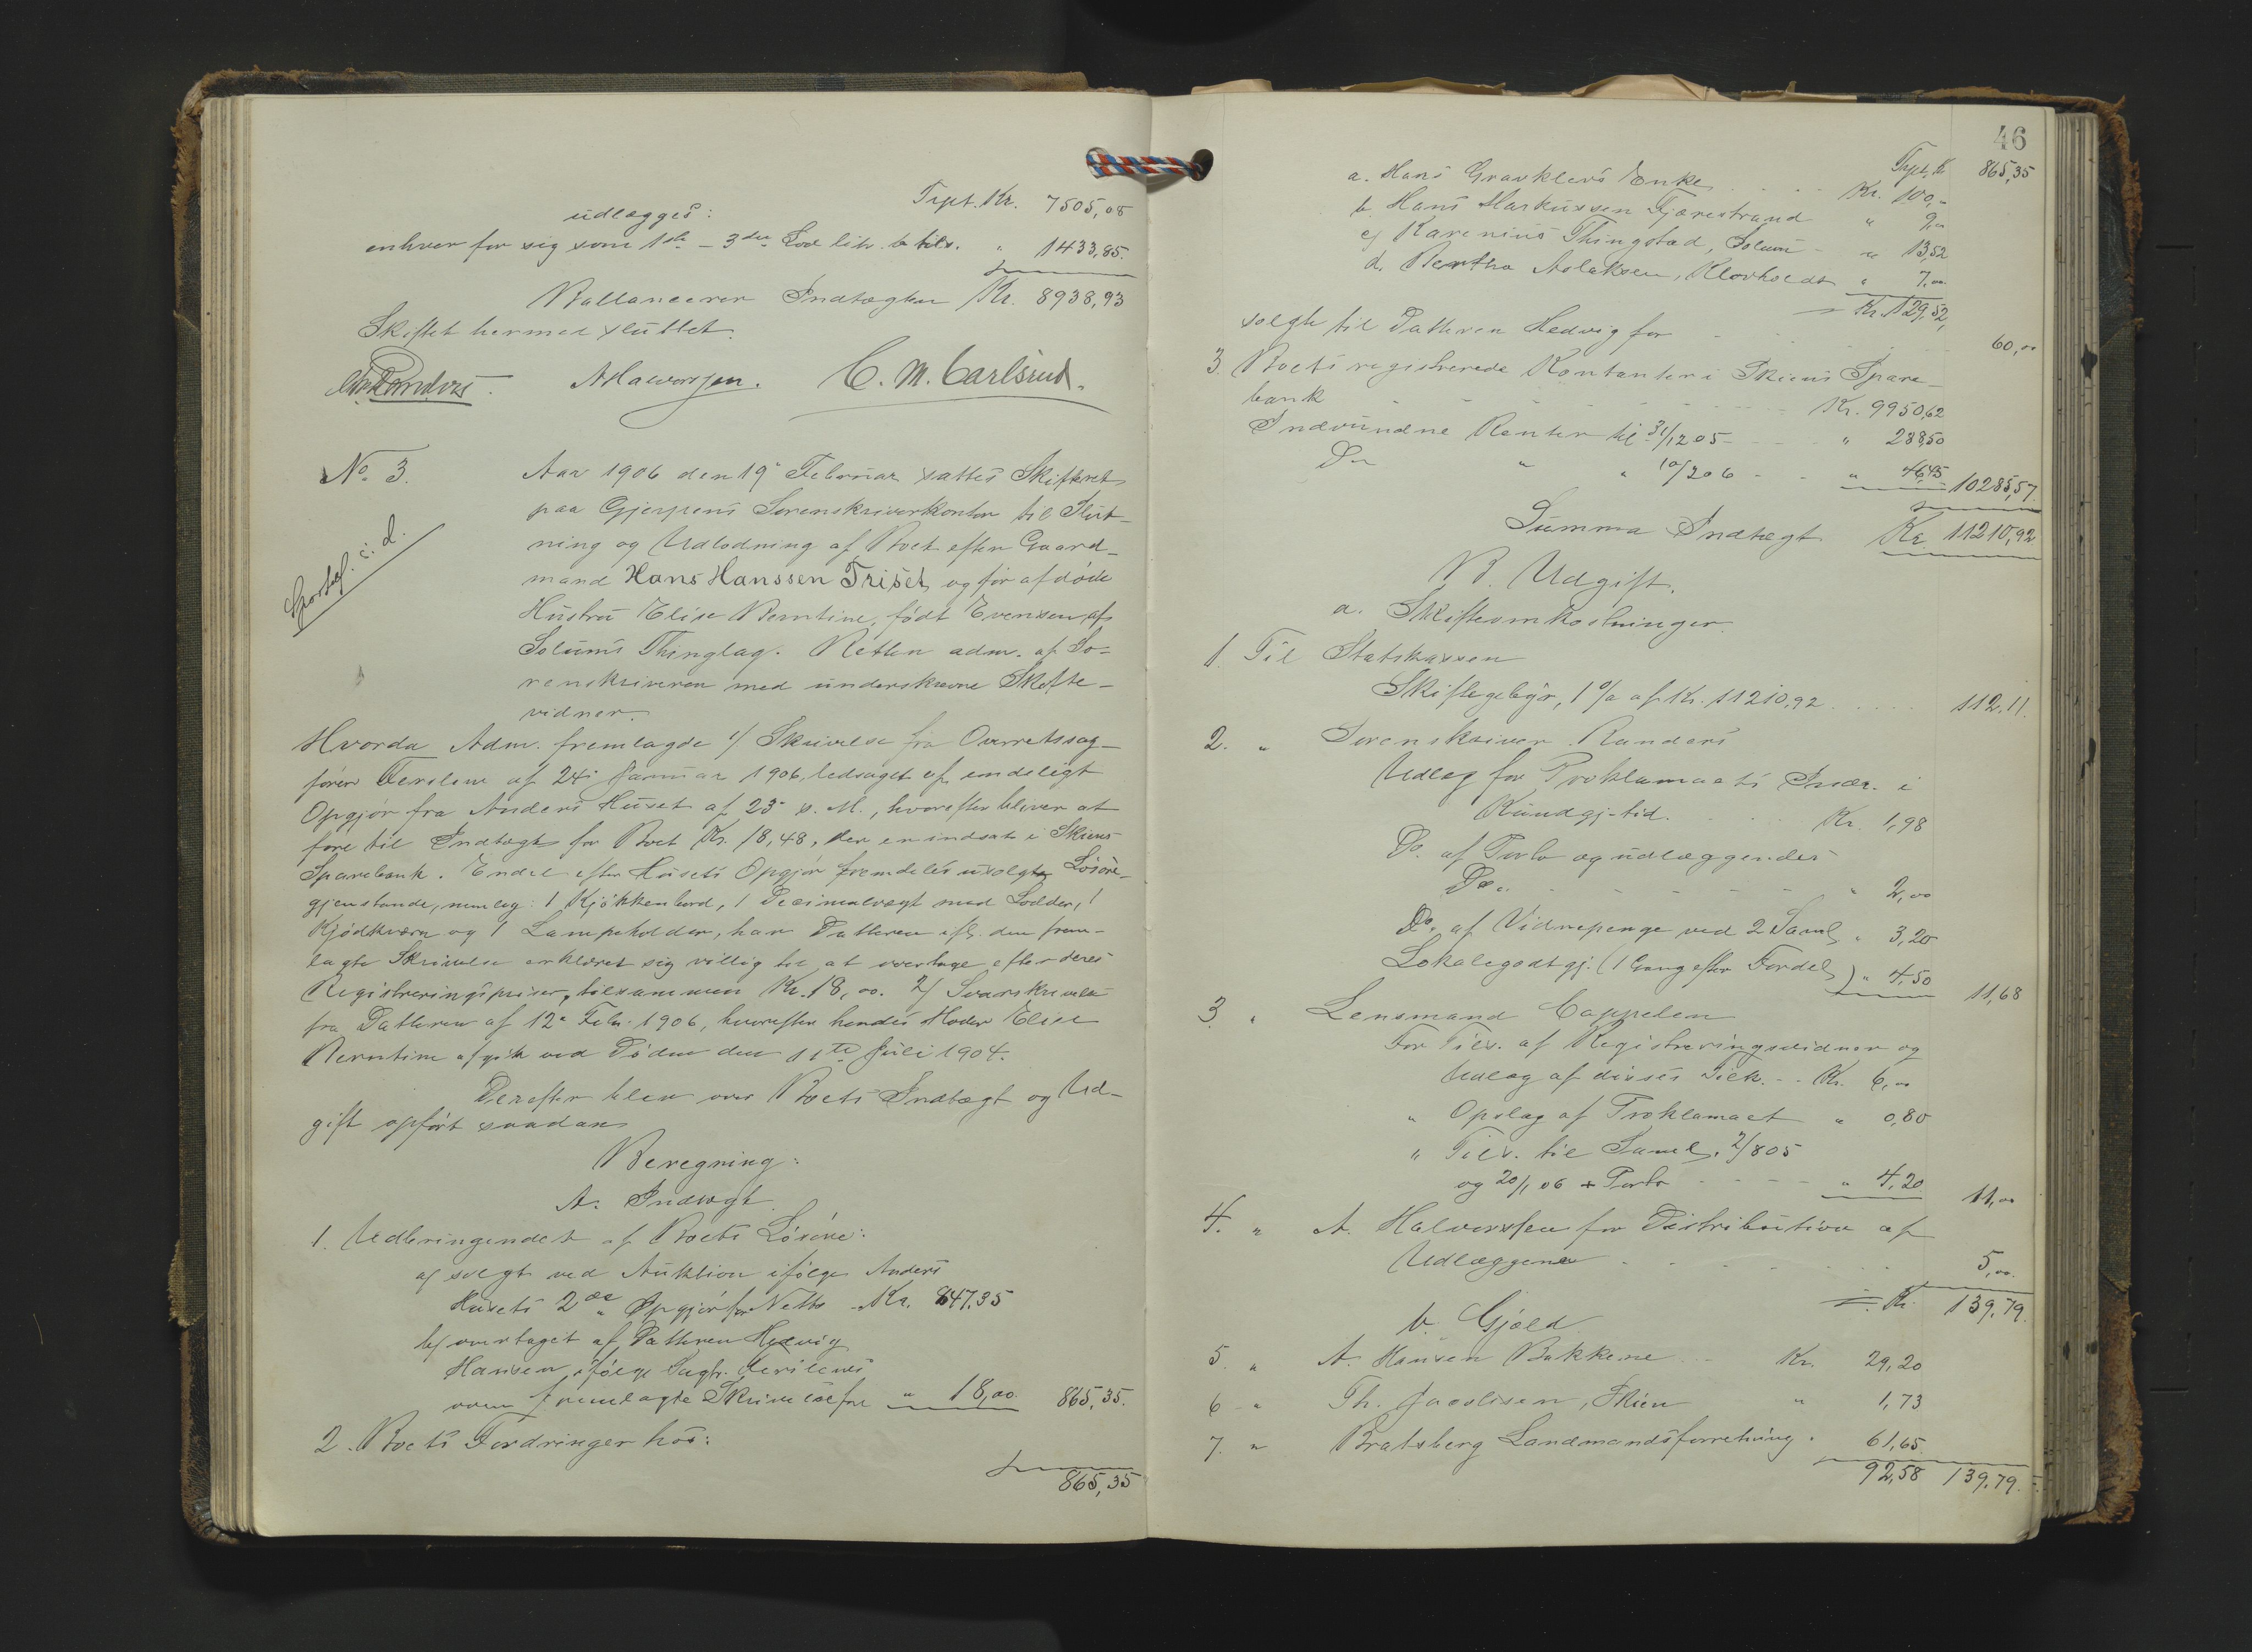 Trpt. Kr. 7505,08
udlægges:
enhver for sig som 1ste – 3die Lod litr. b tils. " 1433,85.
Ballancerer Indtægten Kr. 8938,93
Skiftet hermed sluttet.
Randers. AHalvorsen. C. M. Carlsund.
No. 3.
Aar 1906 den 19. Februar sattes Skifteret
paa Gjerpens Sorenskriverkontor til Slut-
ning og Udlodning af Boet efter Gaard-
mand Hans Hanssen Triset og før afdøde
Hustru Elise Berntine, født Evensen af
Solums Thinglag. Retten adm. af So-
renskriveren med underskrevne Skifte-
vidner.
Hvorda Adm. fremlagde 1/ Skrivelse fra Overretssag-
fører Ferslew af 24. Januar 1906, ledsaget af endeligt
Opgjør fra Anders Huset af 23. s. M., hvorefter bliver at
føre til Indtægt for Boet Kr. 18,48, der er indsat i Skiens
Sparebank. Endel efter Husets Opgjør fremdeles usolgte Løsøre-
gjenstande, nemlig: 1 Kjøkkenbord, 1 Decimalvægt med Lodder, 1
Kjødkværn og 1 Lampeholder, har Datteren ifl. den frem-
lagte Skrivelse erklæret sig villig til at overtage efter deres
Registreringspriser, tilsammen Kr. 18,00. 2/ Svarskrivelse
fra Datteren af 12. Febr. 1906, hvorefter hendes Moder Elise
Berntine afgik ved Døden den 11te Juli 1904.
Derefter blev over Boets Indtægt og Ud-
gift opført saadan
Beregning:
A. Indtægt.
1. Udbringendet af Boets Løsøre:
a/ solgt ved Auktion ifølge Anders
Husets 2de Opgjør for Netto - Kr. 847,35
b/ overtaget af Datteren Hedvig
Hansen ifølge Sagf.
oven fremlagte Skrivelse for " 18,00. 865,35.
2. Boets Fordringer hos:
865,35
46
Trpt. Kr. 865,35
a. Hans Gravklevs Enke . . . Kr. 100,-
b. Hans Markussen Fjærestrand " 9,00
c/ Karenius Thingstad, Solum - " 13,52
d. Bertha Aslaksen, Klovholdt " 7,00
= Kr. 129,52,
solgte til Datteren Hedvig for . . . 60,00
3. Boets registrerede Kontanter i Skiens Spare-
bank - - - - Kr. 9950,62
Indvundne Renter til 31/12 05 - - " 288,50
Do " " 10/2 06 - - " 46,45 10285,57.
Summa Indtægt Kr. 11210,92
B. Udgift.
a. Skifteomkostninger.
1. Til Statskassen
Skiftegebyr, 1 % af Kr. 11210,92 . . . 112,11.
2. " Sorenskriver Randers
Udlæg for Proklamaets Indr. i
Kundgj-tid. . . . Kr. 1,98
Do. af Porto og udlæggendes
Do. - - - - " 2,00
Do. af Vidnepenge ved 2 Saml. " 3,20
Lokalegodtgj. (1 Gang efter Fordel.) " 4,50 11,68
3. " Lensmand Cappelen
For Tils. af Registreringsvidner og
Udlæg af disses Diæt. - - Kr. 6,00
" Opslag af Proklamaet " 0,80
" Tils. til Saml. 2/8 05
og 20/1 06 + Porto - - - - " 4,20. 11,00
4. " A. Halvorsen for Distribution af
Udlæggene . . . 5,00.
= Kr. 139,79.
b. Gjæld
5. " A. Hansen Bakkene - - Kr. 29,20
6 - " Th. Jacobsen, Skien " 1,73
7. " Bratsberg Landmandsforretning . 61,65.
92,58 139,79.